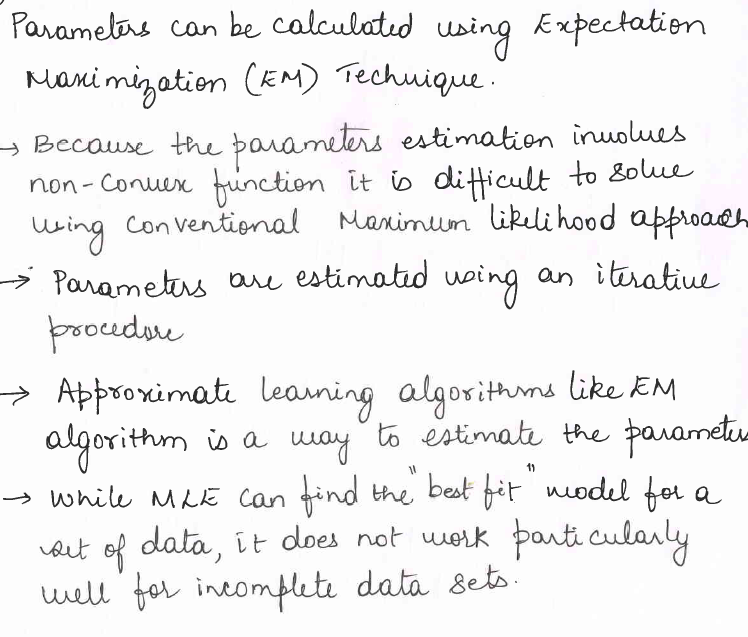 Parameters can be calculated using Expectation
Maximization (EM) Technique.
→ Because the parameters estimation involves
non-convex function it is difficult to solve
using conventional Maximum likelihood approach
→ Parameters are estimated using an iterative
procedure
→ Approximate learning algorithms like EM
algorithm is a way to estimate the parameters
→ while MLE can find the "best fit" model for a
set of data, it does not work particularly
well for incomplete data sets.